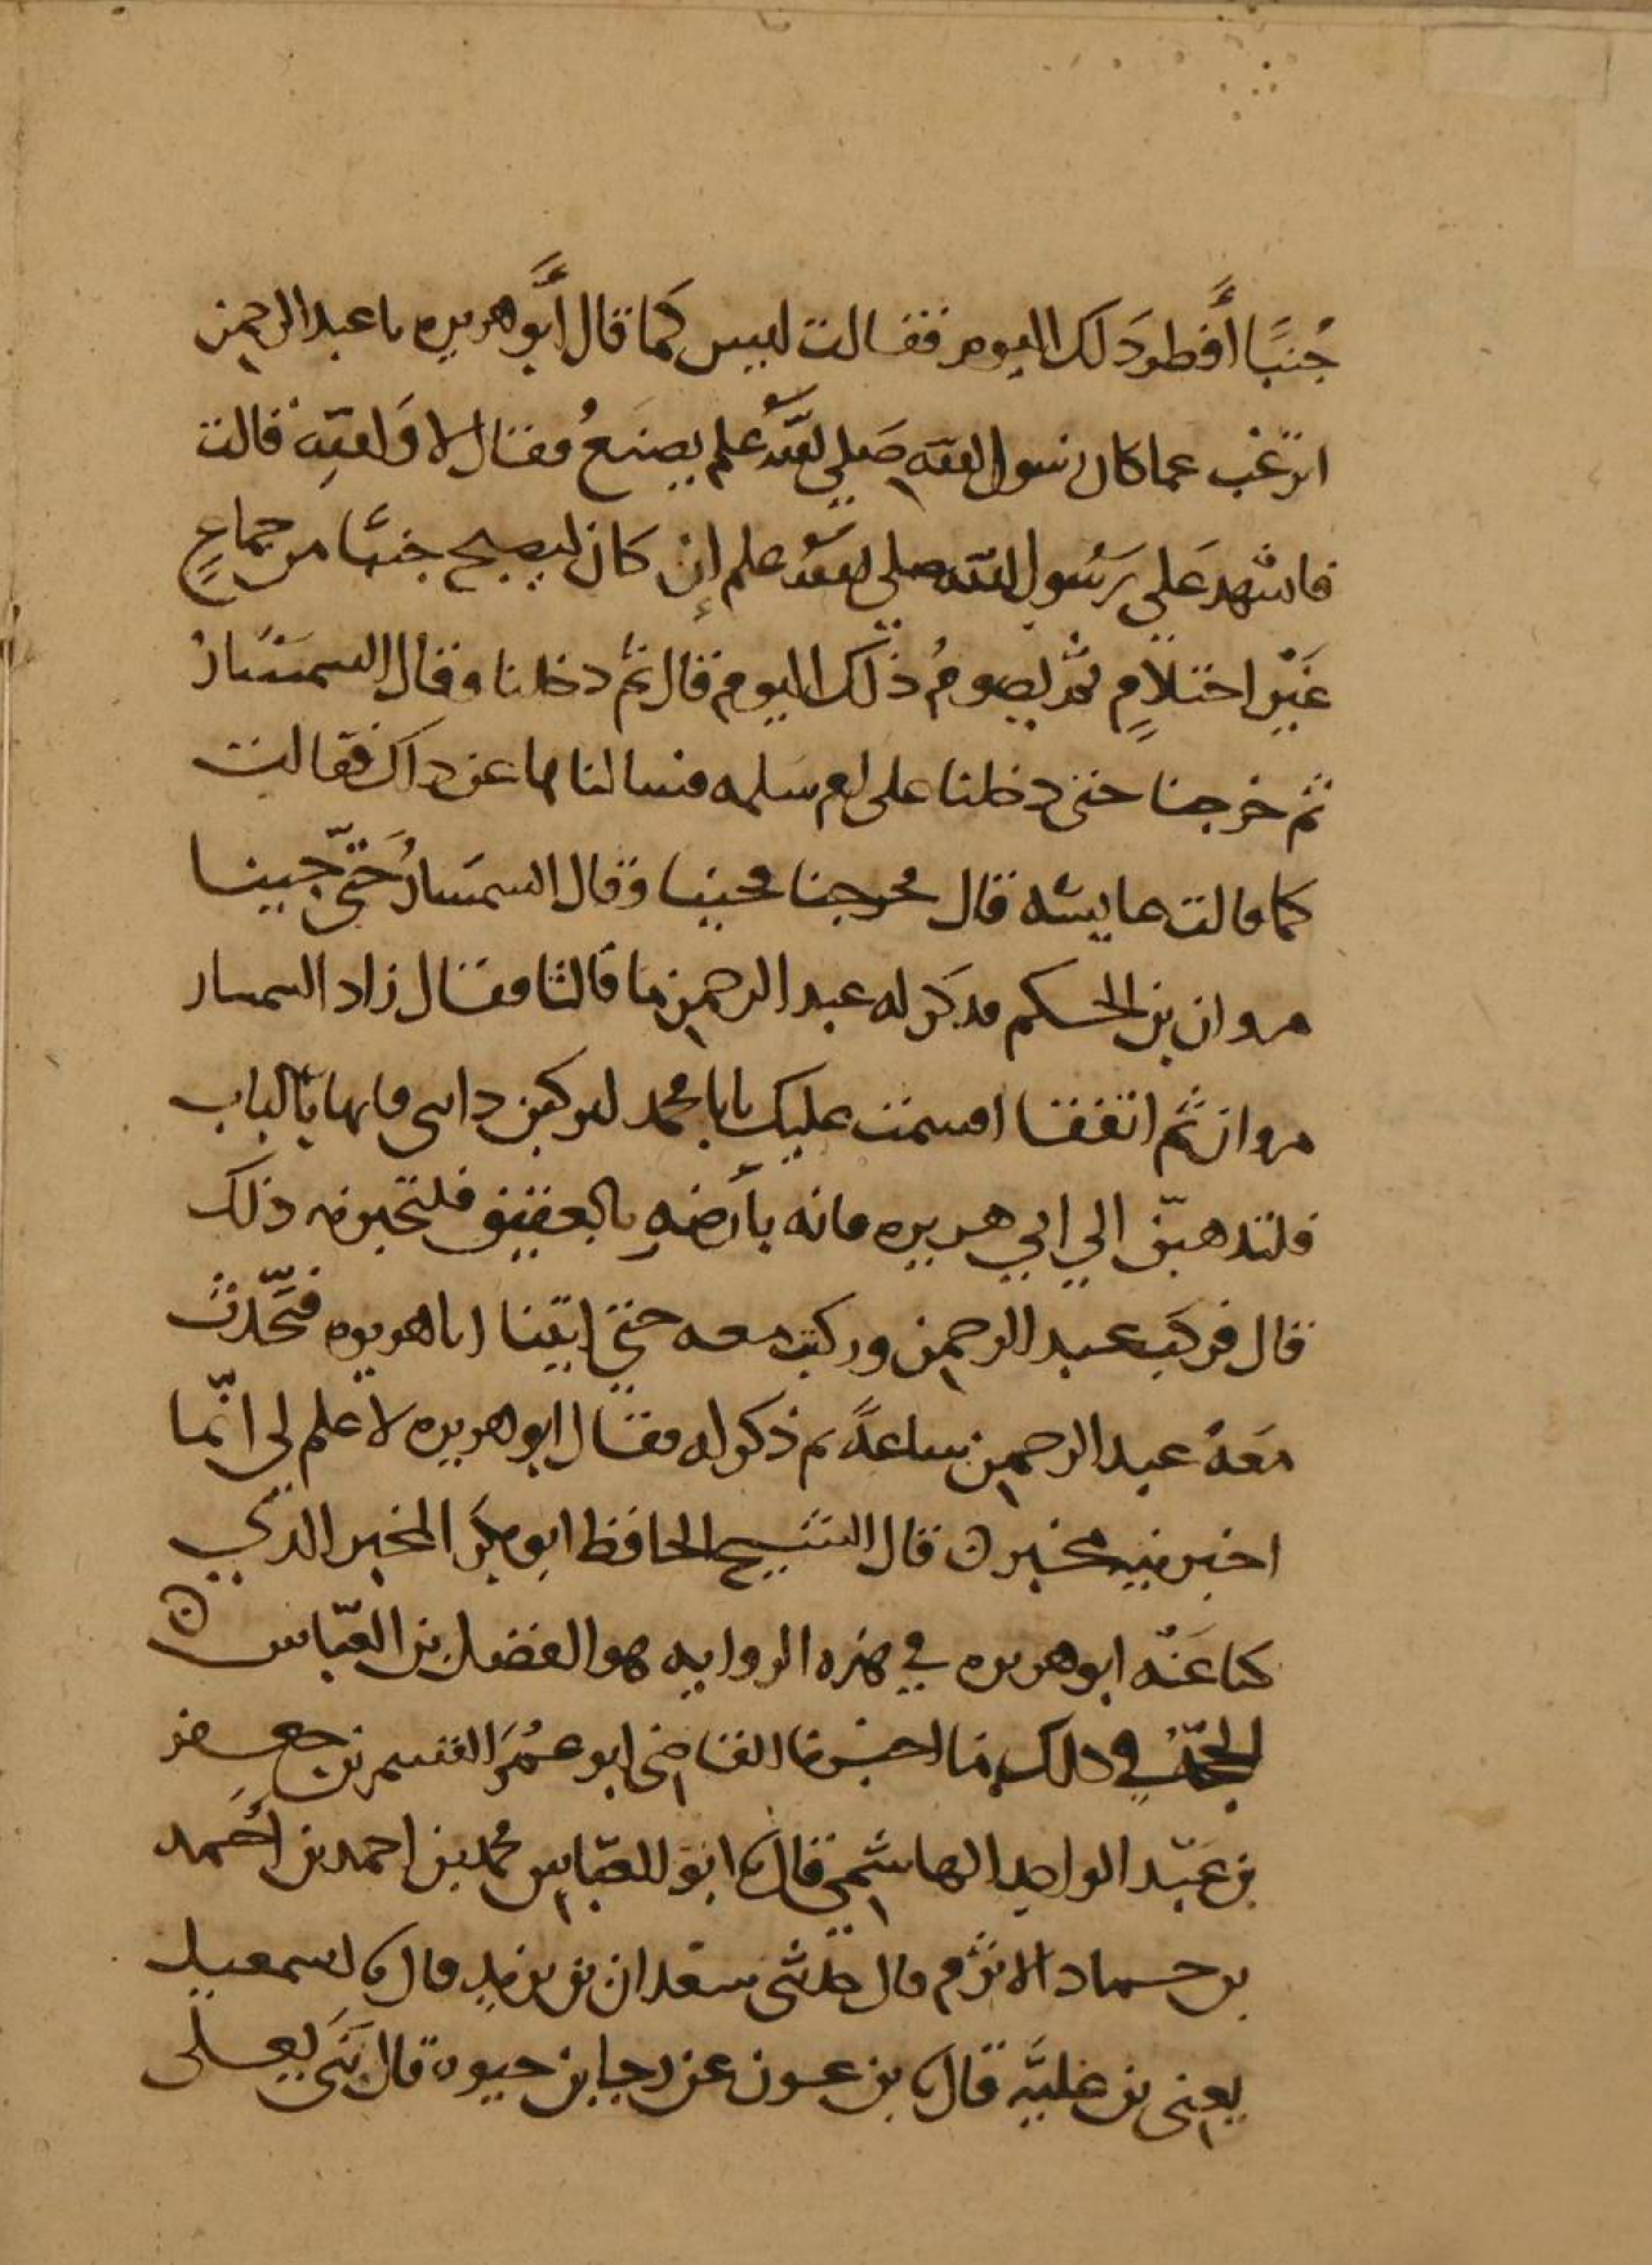 جُنبًا أَفطر ذَلك اليوم فقالت ليس كَما قال أَبو هريره يا عبد الرحمن
اترغب عما كان رسول الله صَلي الله عليه وسلم يصنَعُ فقال لا وَالله قالت
فاشهد عَلي رَسُول الله صلي الله عليه وسلم إِن كان ليصبح جنبًا من جماعٍ
غَيْر احتلامٍ ثم يصومُ ذلك اليوم قال ثم دخلنا وقال السمسَارُ
ثم خرجنا حتى دخلنا على ام سلمه فسالناها عن ذاك فقالت
كما قالت عايشه قال فخرجنا فجينا وقال السمسَارُ حَتّى جينا
مروان بن الحكم فذكر له عبد الرحمن ما قالتا فقال زاد السمسار
مروان ثم اتفقا اقسمت عليك يابا محمد لتركبن دابتى فانها بالباب
فلتذهبنّ الي ابي هريره فانه بأرضهِ بالعقيق فلتخبرنه ذلك
قال فركب عبد الرحمن وركبت معه حتي اتينا ابا هريره فتحَّدث
معَهُ عبد الرحمن ساعةً ثم ذكر له فقال ابو هريره لا علم لى انّما
اخبرنيه مخبر ن قال الشيخ الحافظ ابو بكر المخبر الذي
كنا عَنْه ابو هريره في هذه الروايه هو الفضل بن العبّاس ن
الحجّه في ذلك ما اخبرنا القاضى ابو عُمَر القسم بن جعفر
بن عَبْد الواحد الهاشمي قال نا ابو العبّاس محمد بن احمد بن أَحمد
بن حماد الاثرم قال حدثنى سعدان بن يزيد قال نا اسمعيل
يعنى بن عليَّه قال نا بن عون عن رجا بن حيوه قال بَنَى يعلى